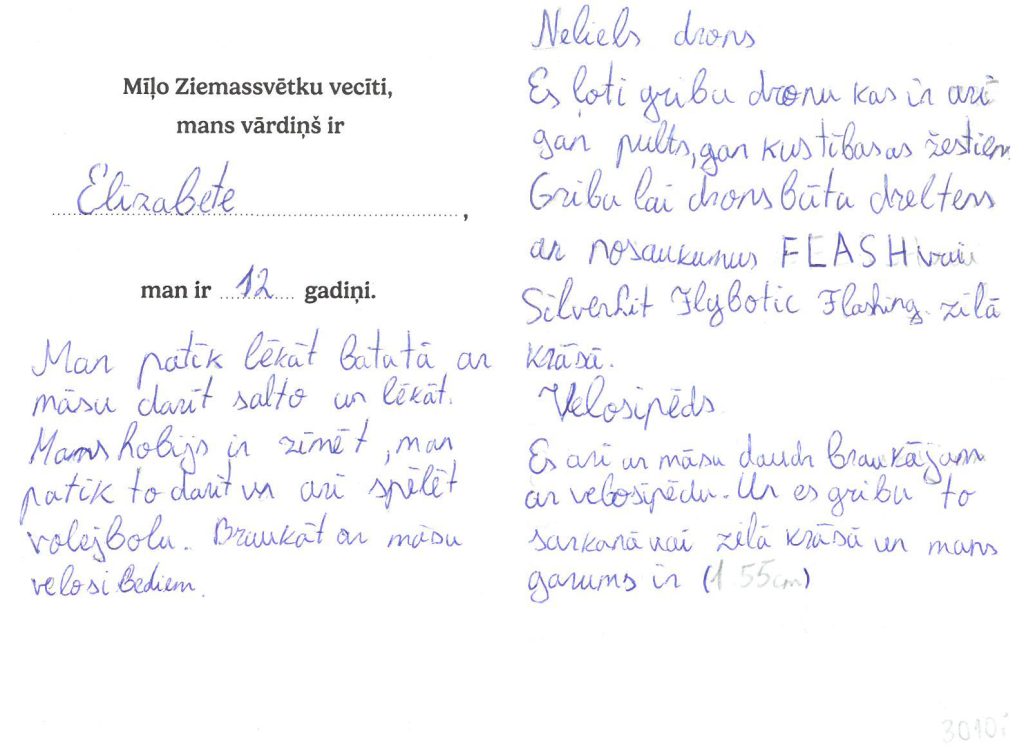 Mīļo Ziemassvētku vecīti,
mans vārdiņš ir
Elizabete,
man ir 12 gadiņi.
Man patīk lēkāt batutā ar
māsu darīt salto un lēkāt.
Mans hobijs ir zīmēt, man
patīk to darīt un arī spēlēt
volejbolu. Braukāt ar māsu
velosibediem.
Neliels drons
Es ļoti gribu dronu kas ir arī
gan pults, gan kustībasas žestiem
Gribu lai drons būta dzeltens
ar nosaukumus FLASH vai
Silverlit Flybotic Flashing zilā
krāsā.
Velosipēds
Es arī ar māsu daudz braukājam
ar velosipēdu. Un es gribu to
sarkanā vai zilā krāsā un mans
garums ir (1.55cm)
3010i